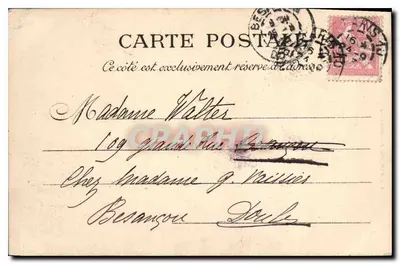 CARTE POSTALE
Ce côté est exclusivement réservé à l'adresse
Madame Walter
109 grande rue
Chez madame G. Vaissier
Besançon Doubs